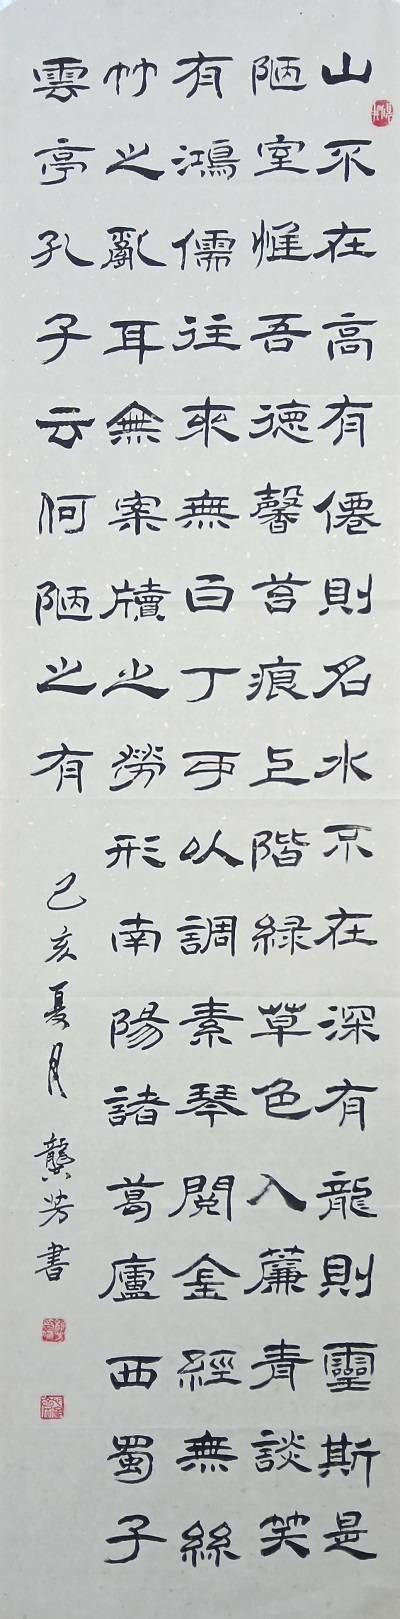 山不在高有僊則名水不在深有龍則靈斯是
陋室惟吾德馨苔痕上階緑草色入簾青談笑
有鴻儒往來無白丁可以調素琴閱金經無絲
竹之亂耳無案牘之勞形南陽諸葛廬西蜀子
雲亭孔子云何陋之有
己亥夏月龔芳書